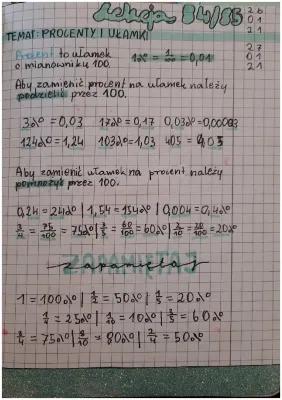 Lekcja 84/85
26
01
21
TEMAT: PROCENTY I UŁAMKI
27
01
21
Procent to ułamek
o mianowniku 100.
1% = 1/100 = 0,01
Aby zamienić procent na ułamek należy
podzielić przez 100.
3% = 0,03 17% = 0,17 0,03% = 0,0003
124% = 1,24 103% = 1,03 405 = 4,05
Aby zamienić ułamek na procent należy
pomnożyć przez 100.
0,24 = 24% | 1,54 = 154% | 0,004 = 0,4%
3/4 = 75/100 = 75% | 3/5 = 60/100 = 60% | 2/10 = 20/100 = 20%
ZAPAMIĘTAJ
1 = 100% | 1/2 = 50% | 1/5 = 20%
1/4 = 25% | 1/10 = 10% | 3/5 = 60%
3/4 = 75% | 8/10 = 80% | 2/4 = 50%